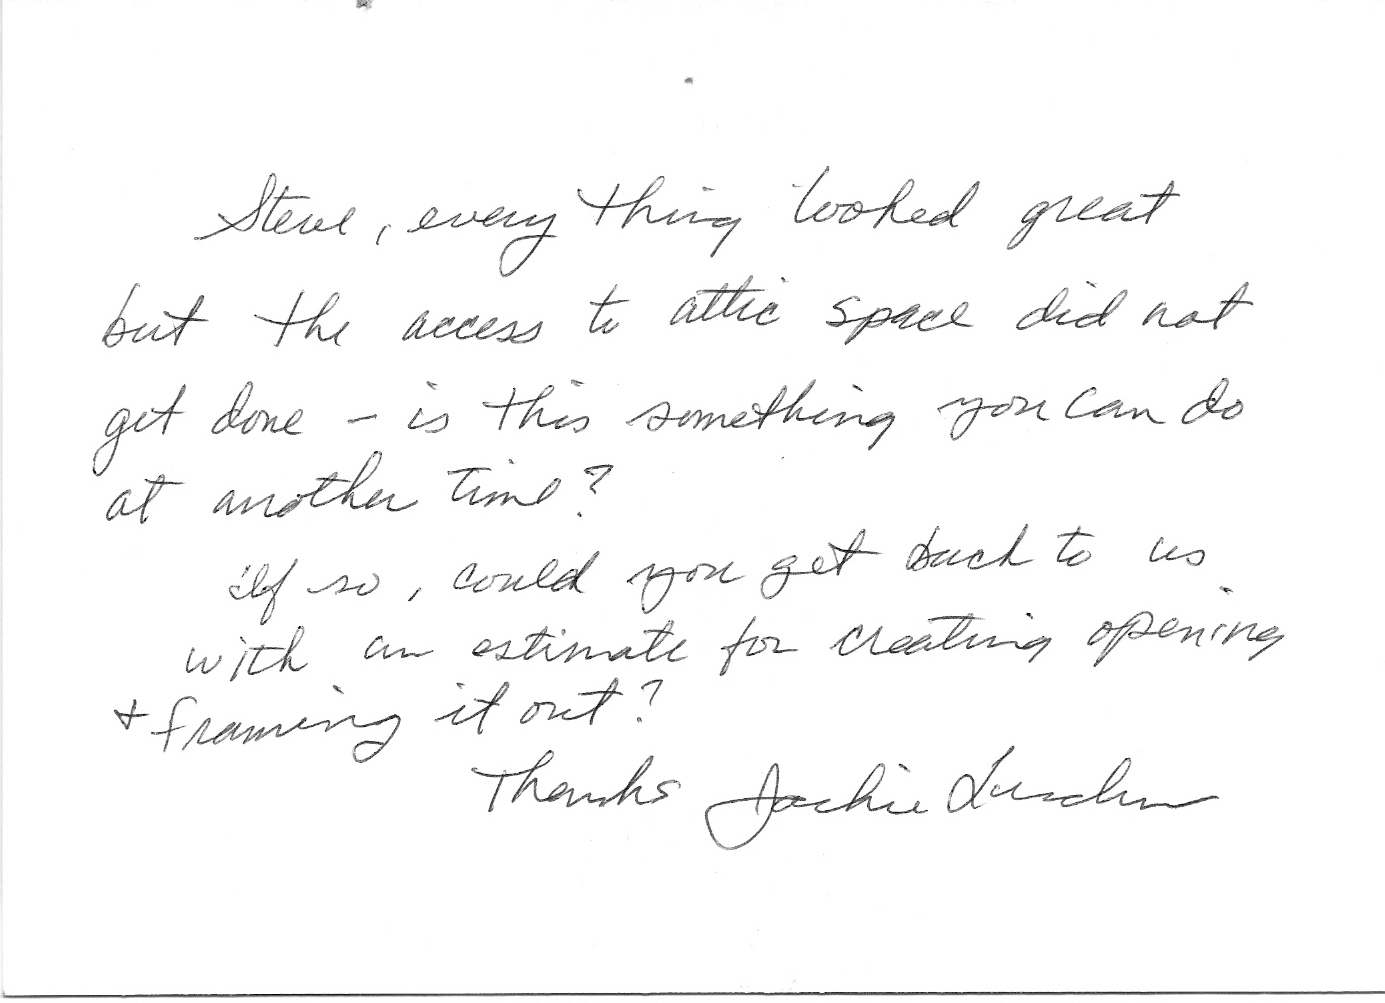 Steve, every thing looked great
but the access to attic space did not
get done - is this something you can do
at another time?
If so, could you get back to us
with an estimate for creating opening
+ framing it out?
Thanks Jackie